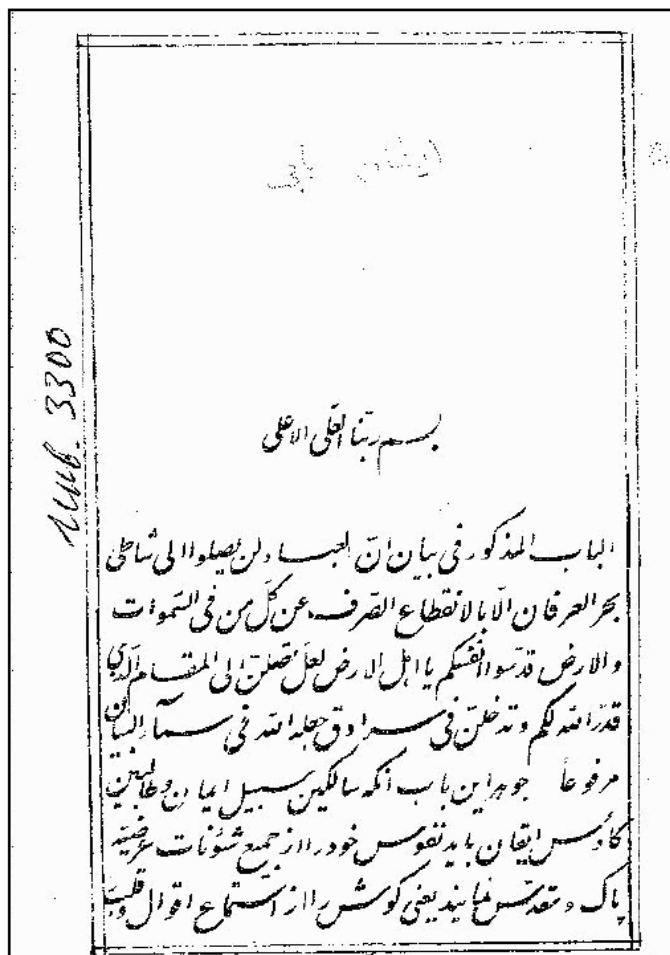 بسم ربنا العلی الاعلی
الباب المذکور فی بیان انّ العباد لن یصلوا الی شاطی
بحر العرفان الّا بالانقطاع الصرف عن کلّ من فی السّموات
والارض قدّسوا انفسکم یا اهل الارض لعلّ تصلنّ الی المقام الّذی
قدّر الله لکم و تدخلنّ فی سرادق جعله الله فی سمآء البیان
مرفوعاً جوهر این باب آنکه سالکین سبیل ایمان و طالبین
کاؤس ایقان باید نفوس خود را از جمیع شئونات عرضیّه
پاک و مقدّس نمایند یعنی گوش را از استماع اقوال و قلب
Инв. 3300